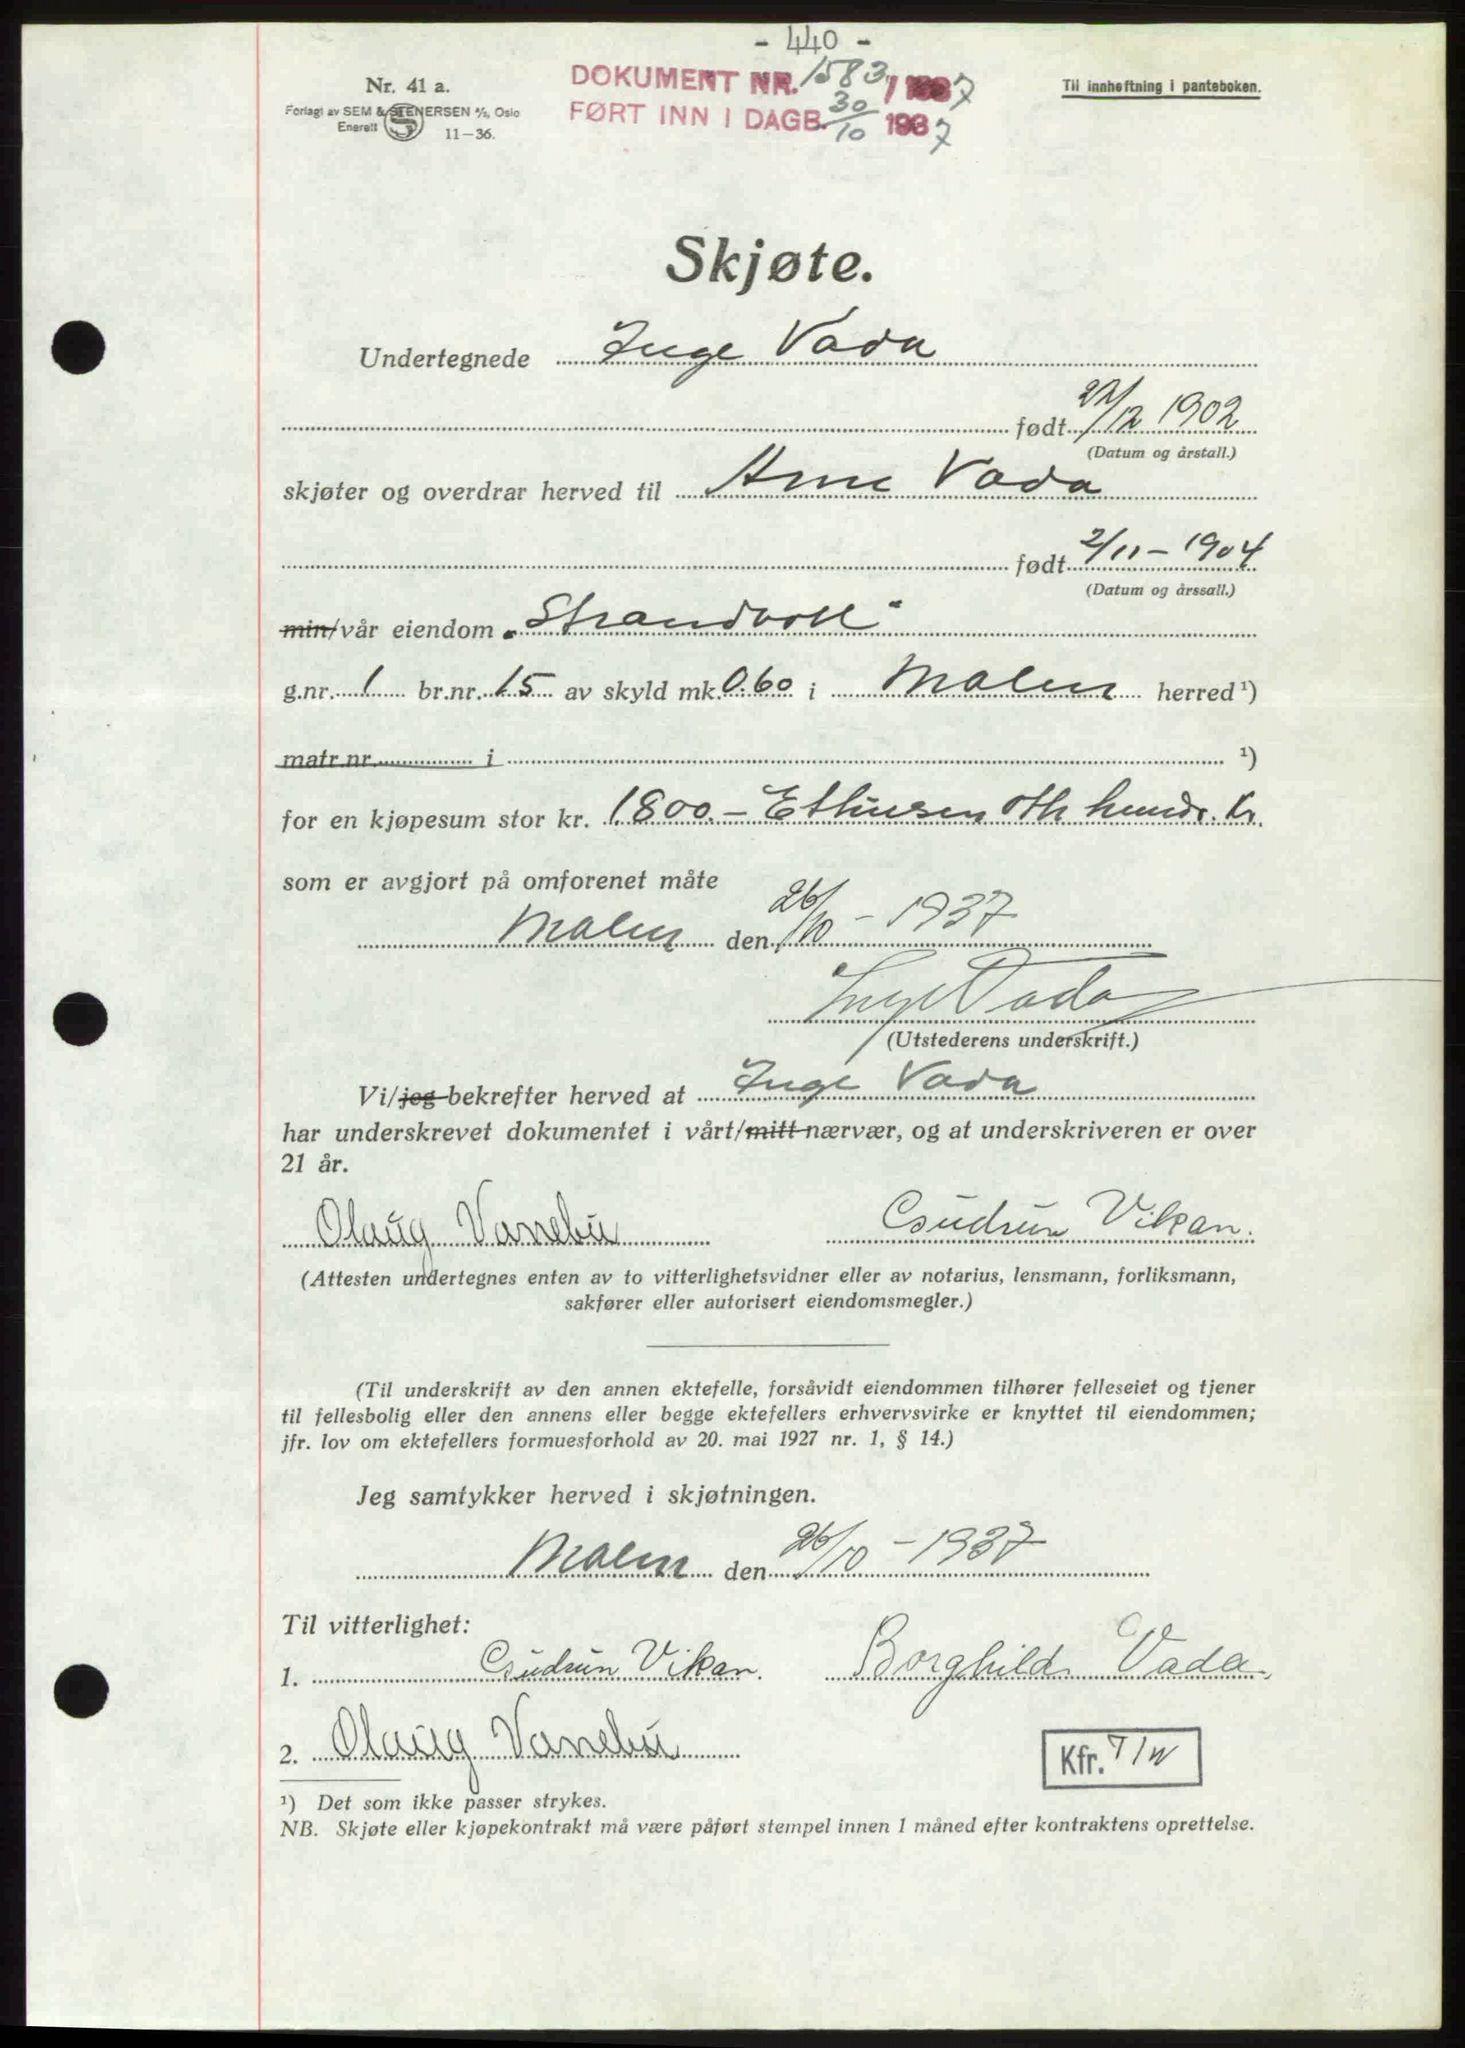 - 440 -
Nr. 41 a.
Forlagt av SEM & STENERSEN A/S, Oslo
Enerett
11-36.
DOKUMENT NR. 1583/1937
FØRT INN I DAGB. 30/10 1937
Til innheftning i panteboken.
Skjøte.
Undertegnede Inge Vada
født 22/12 1902
(Datum og årstall.)
skjøter og overdrar herved til Arne Vada
født 2/11-1904
(Datum og årssall.)
min/vår eiendom „Strandvoll"
g.nr. 1 br.nr. 15 av skyld mk. 0.60 i Malm herred ¹)
matr.nr. i ¹)
for en kjøpesum stor kr. 1800.- Ettusen otte hundr. kr.
som er avgjort på omforenet måte
Malm den 26/10 - 1937
Inge Vada
(Utstederens underskrift.)
Vi/jeg bekrefter herved at Inge Vada
har underskrevet dokumentet i vårt/mitt nærvær, og at underskriveren er over
21 år.
Olaug Vanebu Gudrun Vikan.
(Attesten undertegnes enten av to vitterlighetsvidner eller av notarius, lensmann, forliksmann,
sakfører eller autorisert eiendomsmegler.)
(Til underskrift av den annen ektefelle, forsåvidt eiendommen tilhører felleseiet og tjener
til fellesbolig eller den annens eller begge ektefellers erhvervsvirke er knyttet til eiendommen;
jfr. lov om ektefellers formuesforhold av 20. mai 1927 nr. 1, § 14.)
Jeg samtykker herved i skjøtningen.
Malm den 26/10 - 1937
Til vitterlighet:
1. Gudrun Vikan. Borghild Vada.
2. Olaug Vanebu
Kfr.
¹) Det som ikke passer strykes.
NB. Skjøte eller kjøpekontrakt må være påført stempel innen 1 måned efter kontraktens oprettelse.